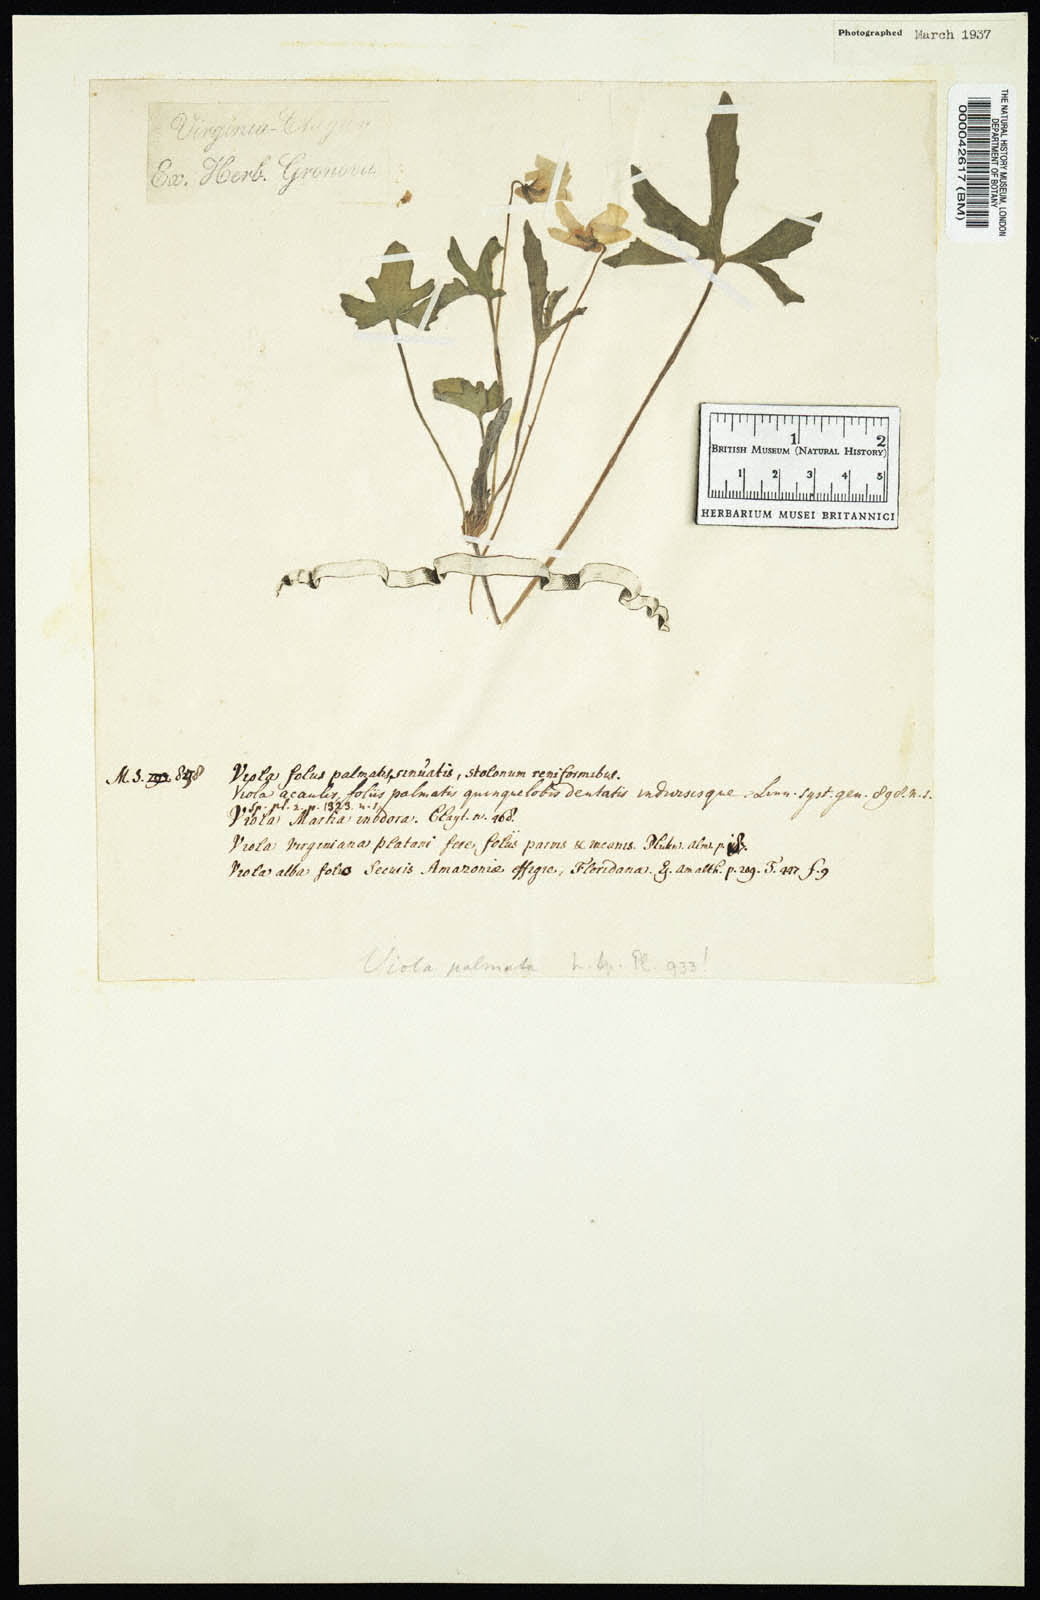 Photographed March 1937
THE NATURAL HISTORY MUSEUM, LONDON
DEPARTMENT OF BOTANY
000042617 (BM)
Virginia-Clayton
Ex. Herb. Gronovii
1 2
BRITISH MUSEUM (NATURAL HISTORY)
1 2 3 4 5
HERBARIUM MUSEI BRITANNICI
M.S. 848 Viola foliis palmatis, sinuatis, stolonum reniformibus.
Viola acaulis, foliis palmatis quinquelobis dentatis indivisisque. Linn. syst. gen. 898. n. 1.
Sp. pl. 2. p. 1323. n. 1.
Viola Martia inodora. Clayt. n. 468.
Viola Virginiana Platani fere, foliis parvis & incanis. Pluken. Alm. p.
Viola alba folio Securis Amazoniæ effigie, Floridana. Ej. amalth. p. 209. T. 447 f. 9
Viola palmata L. Sp. Pl. 933!